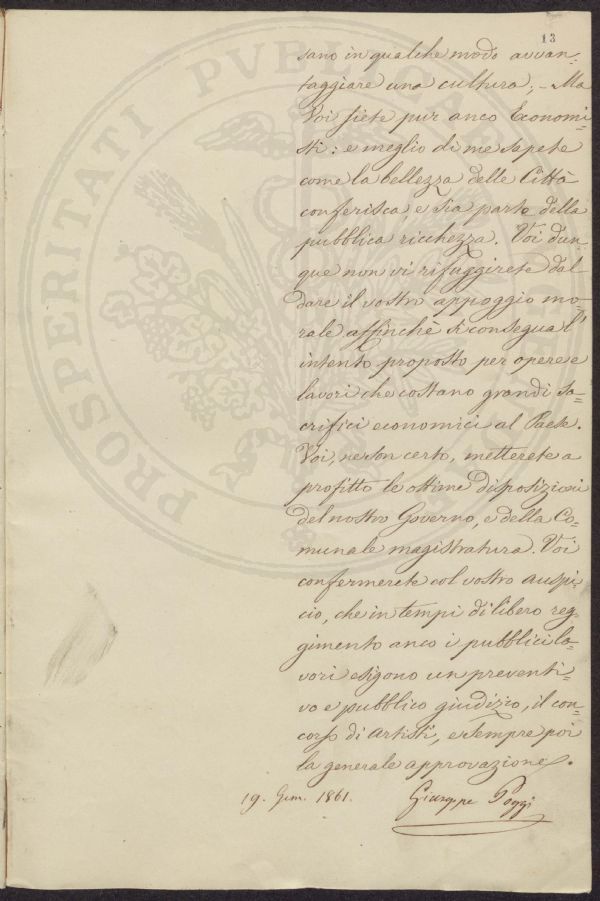 13
sano in qualche modo avvan=
taggiare una cultura; - Ma
Voi siete pur anco Economi=
sti: e meglio di me sapete
come la bellezza delle Città
conferisca, e sia parte della
pubblica ricchezza. Voi dun=
que non vi rifuggirete dal
dare il vostro appoggio mo=
rale affinchè si consegua l'
intento proposto per opere e
lavori che costano grandi sa=
crifici economici al Paese.
Voi, ne son certo, metterete a
profitto le ottime disposizioni
del nostro Governo, e della Co=
munale magistratura. Voi
confermerete col vostro auspi=
cio, che in tempi di libero reg=
gimento anco i pubblici la=
vori esigono un preventi=
vo e pubblico giudizio, il con=
corso di Artisti, e sempre poi
la generale approvazione.
19. Genn. 1861. Giuseppe Poggi
PROSPERITATI PVBLICAE